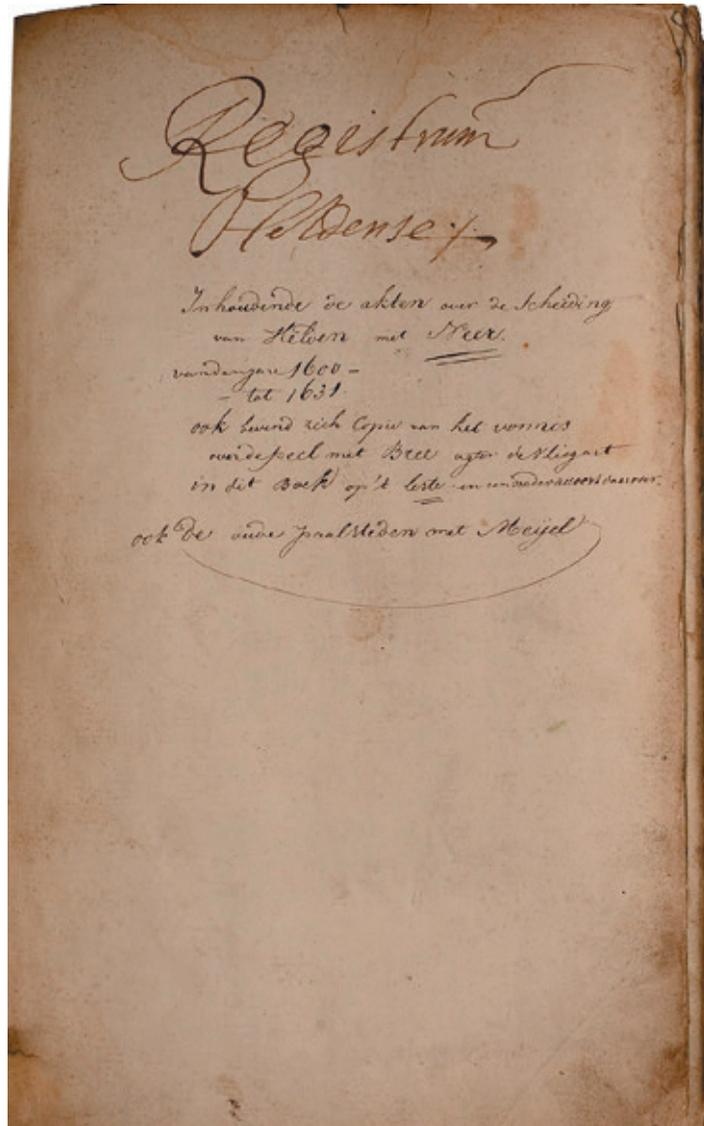 Registrum
Heldense
Inhoudende de akten over de Scheiding
van Helden met Neer.
van den jare 1600 -
- tot 1631.
ook bevind zich Copie van het vonnis
over de peel met Bree agter de Vlisgart
in dit Boek op't leste en een nader accoord daarover.
ook De oude paalsteden met Meijel